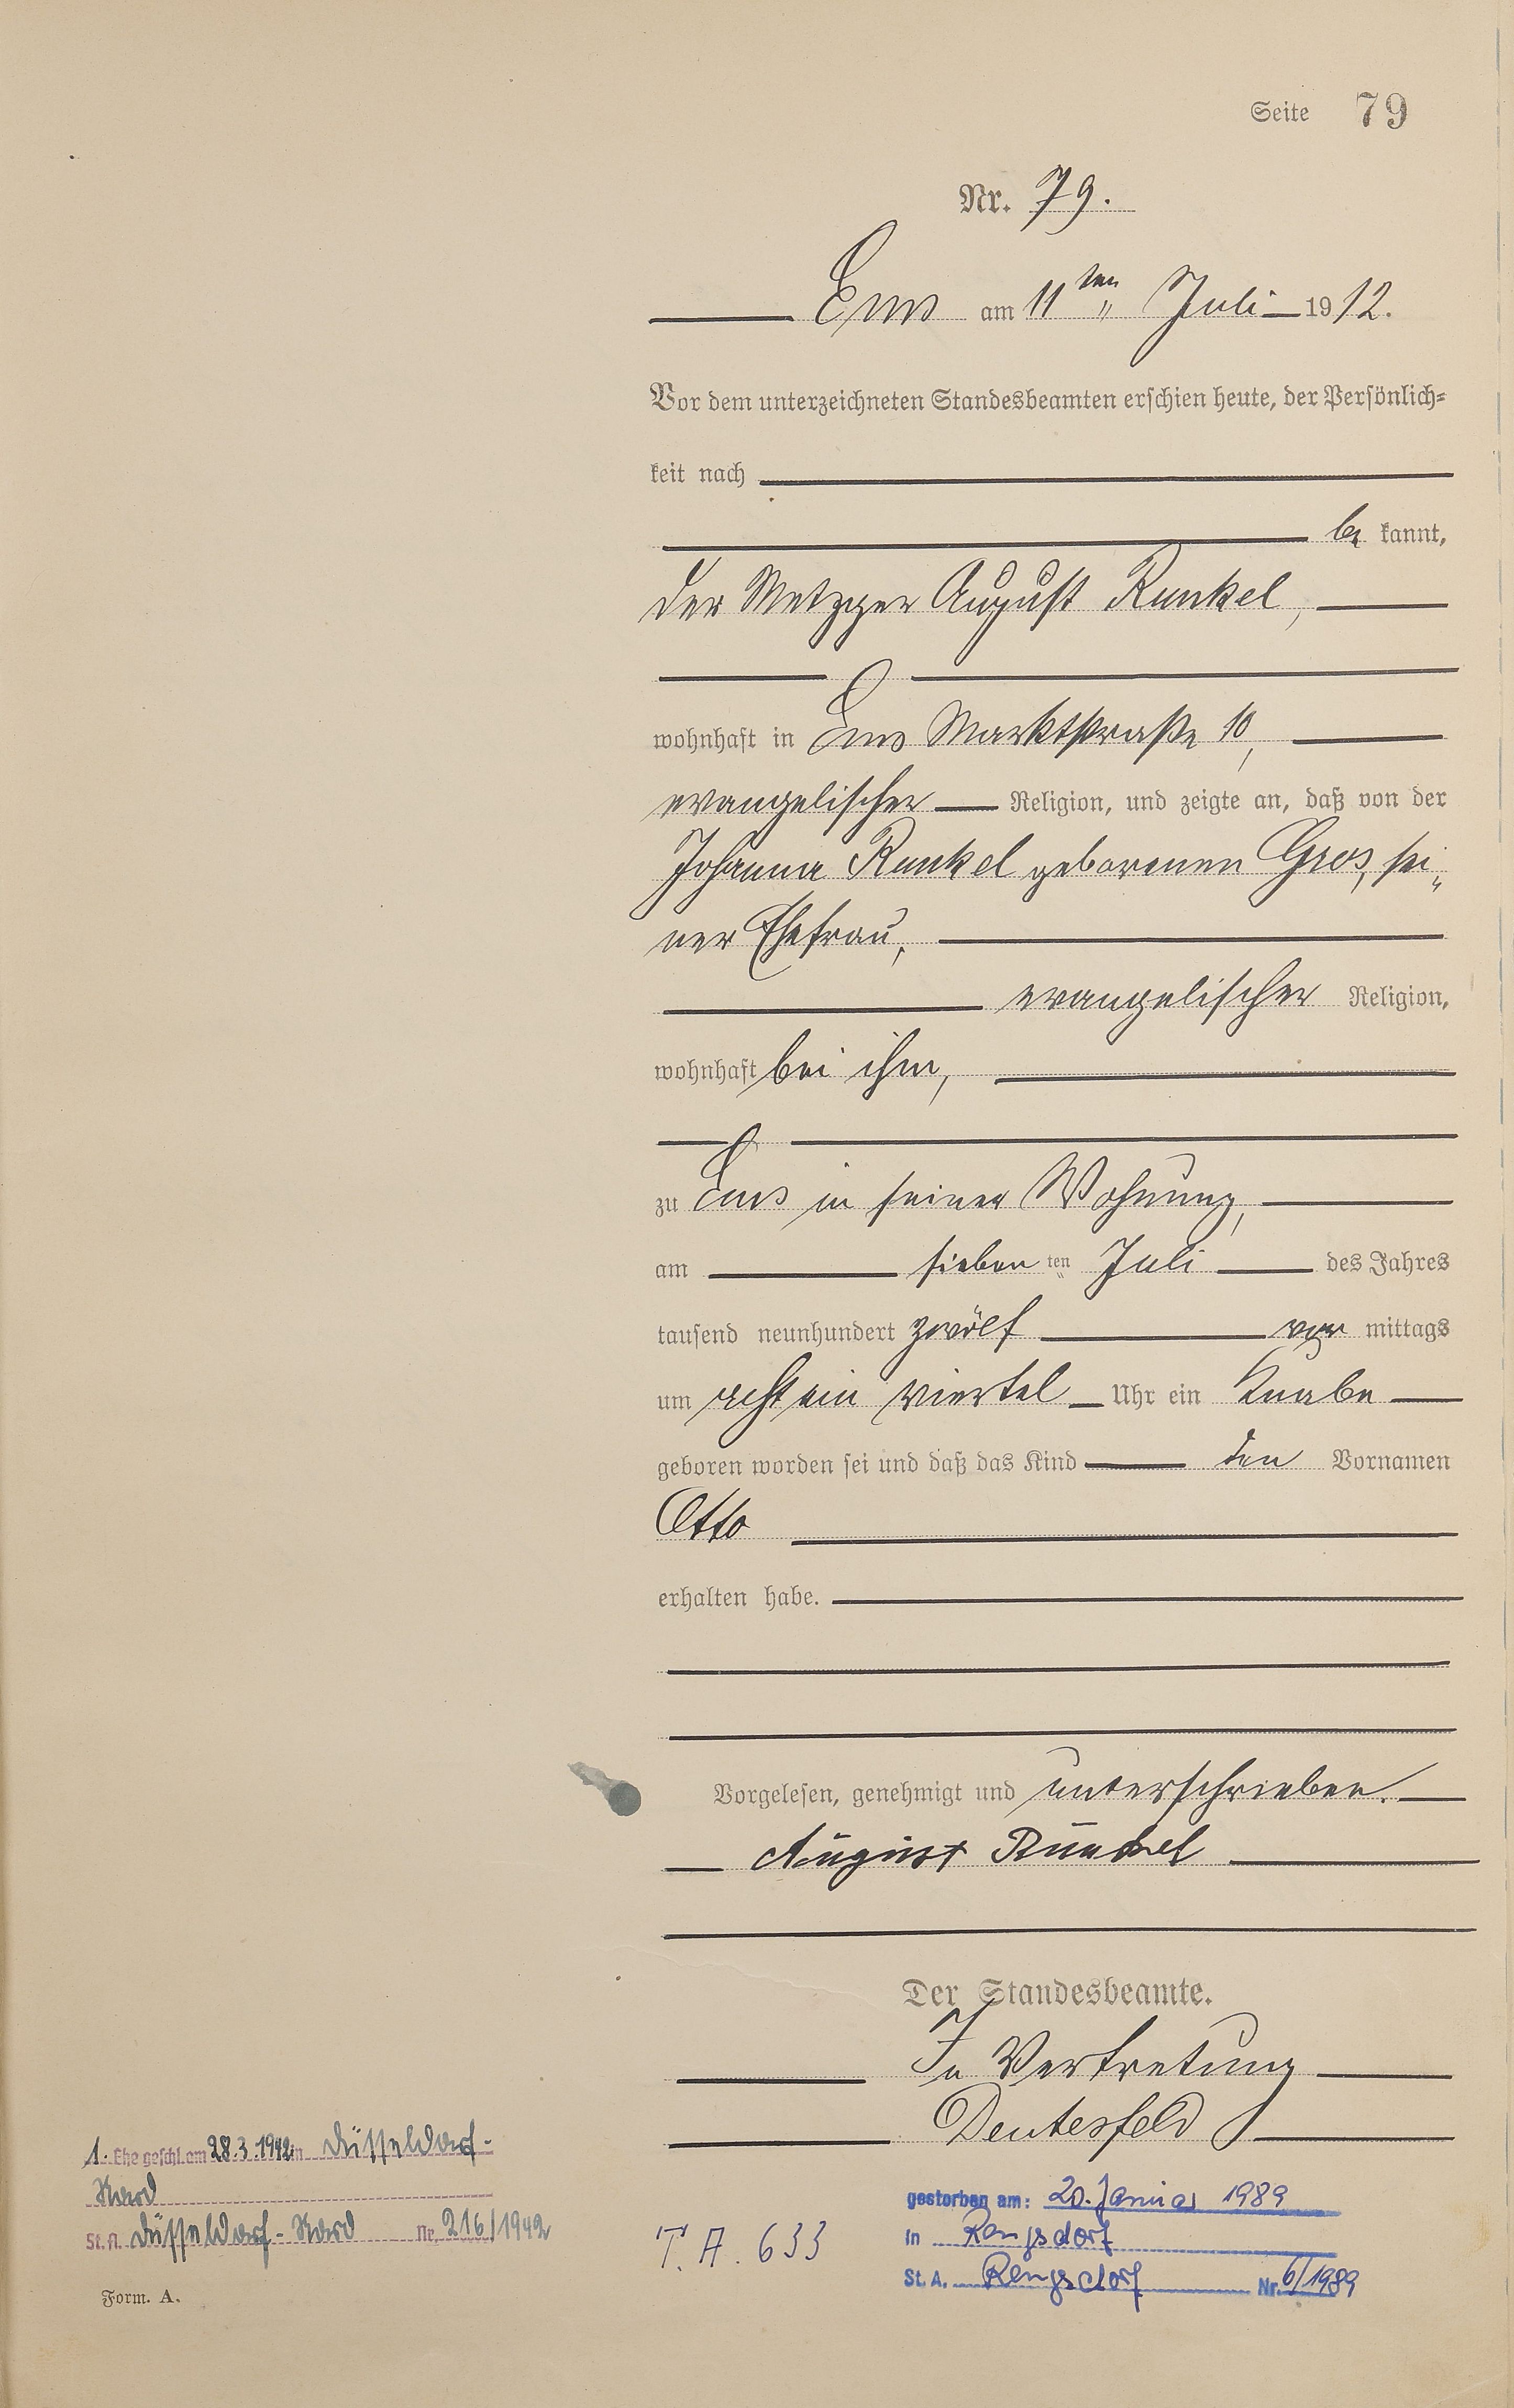 Seite 79
Nr. 79.
Ems am 11ten Juli 1912.
Vor dem unterzeichneten Standesbeamten erschien heute, der Persönlich-
keit nach
be kannt,
der Metzger August Runkel,
wohnhaft in Ems Marktstraße 10,
evangelischer Religion, und zeigte an, daß von der
Johanna Runkel geborenen Gros, sei-
ner Ehefrau,
evangelischer Religion,
wohnhaft bei ihm,
zu Ems in seiner Wohnung,
am sieben ten Juli des Jahres
tausend neunhundert zwölf vor mittags
um acht ein viertel Uhr ein Knabe
geboren worden sei und daß das Kind den Vornamen
Otto
erhalten habe.
Vorgelesen, genehmigt und unterschrieben.
August Runkel
Der Standesbeamte.
In Vertretung
Deutesfeld
1. Ehe geschl. am 28.3.1942 in Düsseldorf-
Nord
St. A. Düsseldorf-Nord Nr. 216/1942
T. A. 633
gestorben am: 20. Januar 1989
in Rengsdorf
St. A. Rengsdorf Nr. 6/1989
Form. A.